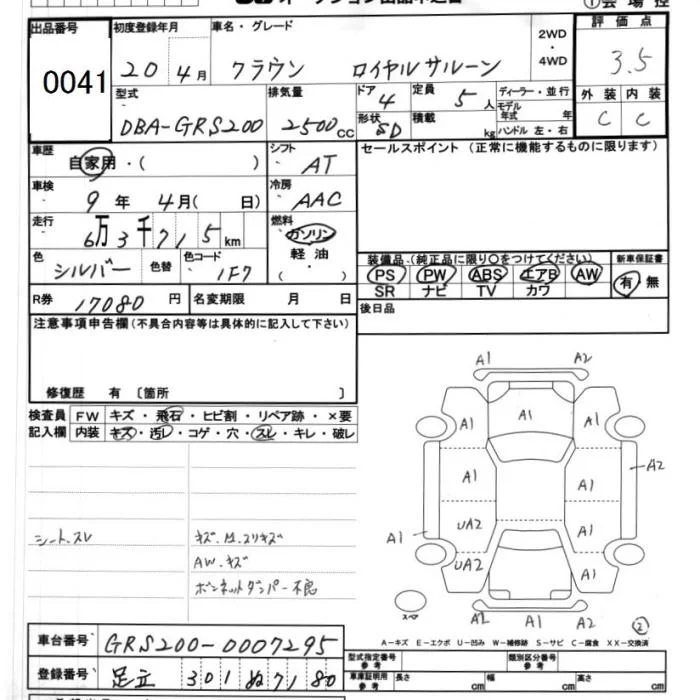 出品番号 初度登録年月 車名・グレード 2WD・4WD 評価点
0041 20年 4月 クラウン ロイヤルサルーン 3.5
型式 排気量 ドア 4 定員 5人 ディーラー・並行 外装 内装
DBA-GRS200 2500cc 形状 SD 積載 kg モデル年式 年 ハンドル 左・右 C C
車歴 自家用・( ) シフト AT セールスポイント(正常に機能するものに限ります)
車検 9年 4月( 日) 冷房 AAC
走行 6万3千715km 燃料 ガソリン 軽油 ( )
色 シルバー 色替 色コード 1F7 装備品(純正品に限り○をつけてください) 新車保証書
PS PW ABS エアB AW 有・無
SR ナビ TV カワ
R券 17080円 名変期限 月 日 後日品
注意事項申告欄(不具合内容等は具体的に記入して下さい)
修復歴 有 〔箇所 〕
検査員 FW キズ・飛石・ヒビ割・リペア跡・×要
記入欄 内装 キズ・汚レ・コゲ・穴・スレ・キレ・破レ
シートスレ
AW キズ
ボンネットダンパー不良
A1 A2
A1 A1 A1
A1 A1 A2
A1 UA2 A1
UA2 A1
スペア
A2 A1 A2 ②
A-キズ E-エクボ U-凹み W-補修跡 S-サビ C-腐食 XX-交換済
車台番号 GRS200-0007295
登録番号 足立 301 ぬ 7180
型式指定番号 参考 類別区分番号 参考
車庫証明用 参考 長さ cm 幅 cm 高さ cm